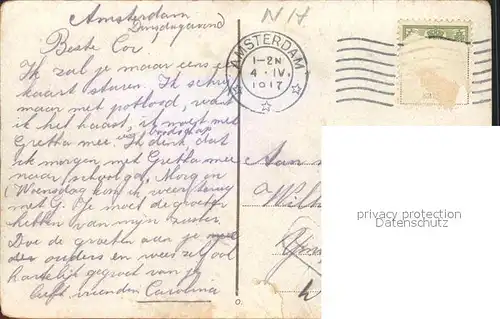 Amsterdam
Dinsdagavond
N H
AMSTERDAM
1-2N
4 · IV.
1917
Beste Cor.
Ik zal je maar eens een
kaart sturen. Ik schrijf
maar met potlood, want
ik heb haast, ik moet met
Gretha mee boodschap. Ik denk dat
ik morgen met Gretha mee
naar school ga. Morgen
(Woensdag kom ik weer terug
met G. Je moet de groeten
hebben van mijn zuster.
Doe de groeten aan je
ouders en wees zelf ook
hartelijk gegroet van je
liefh vrienden Carolina
Aan
Wilh
privacy protection
Datenschutz